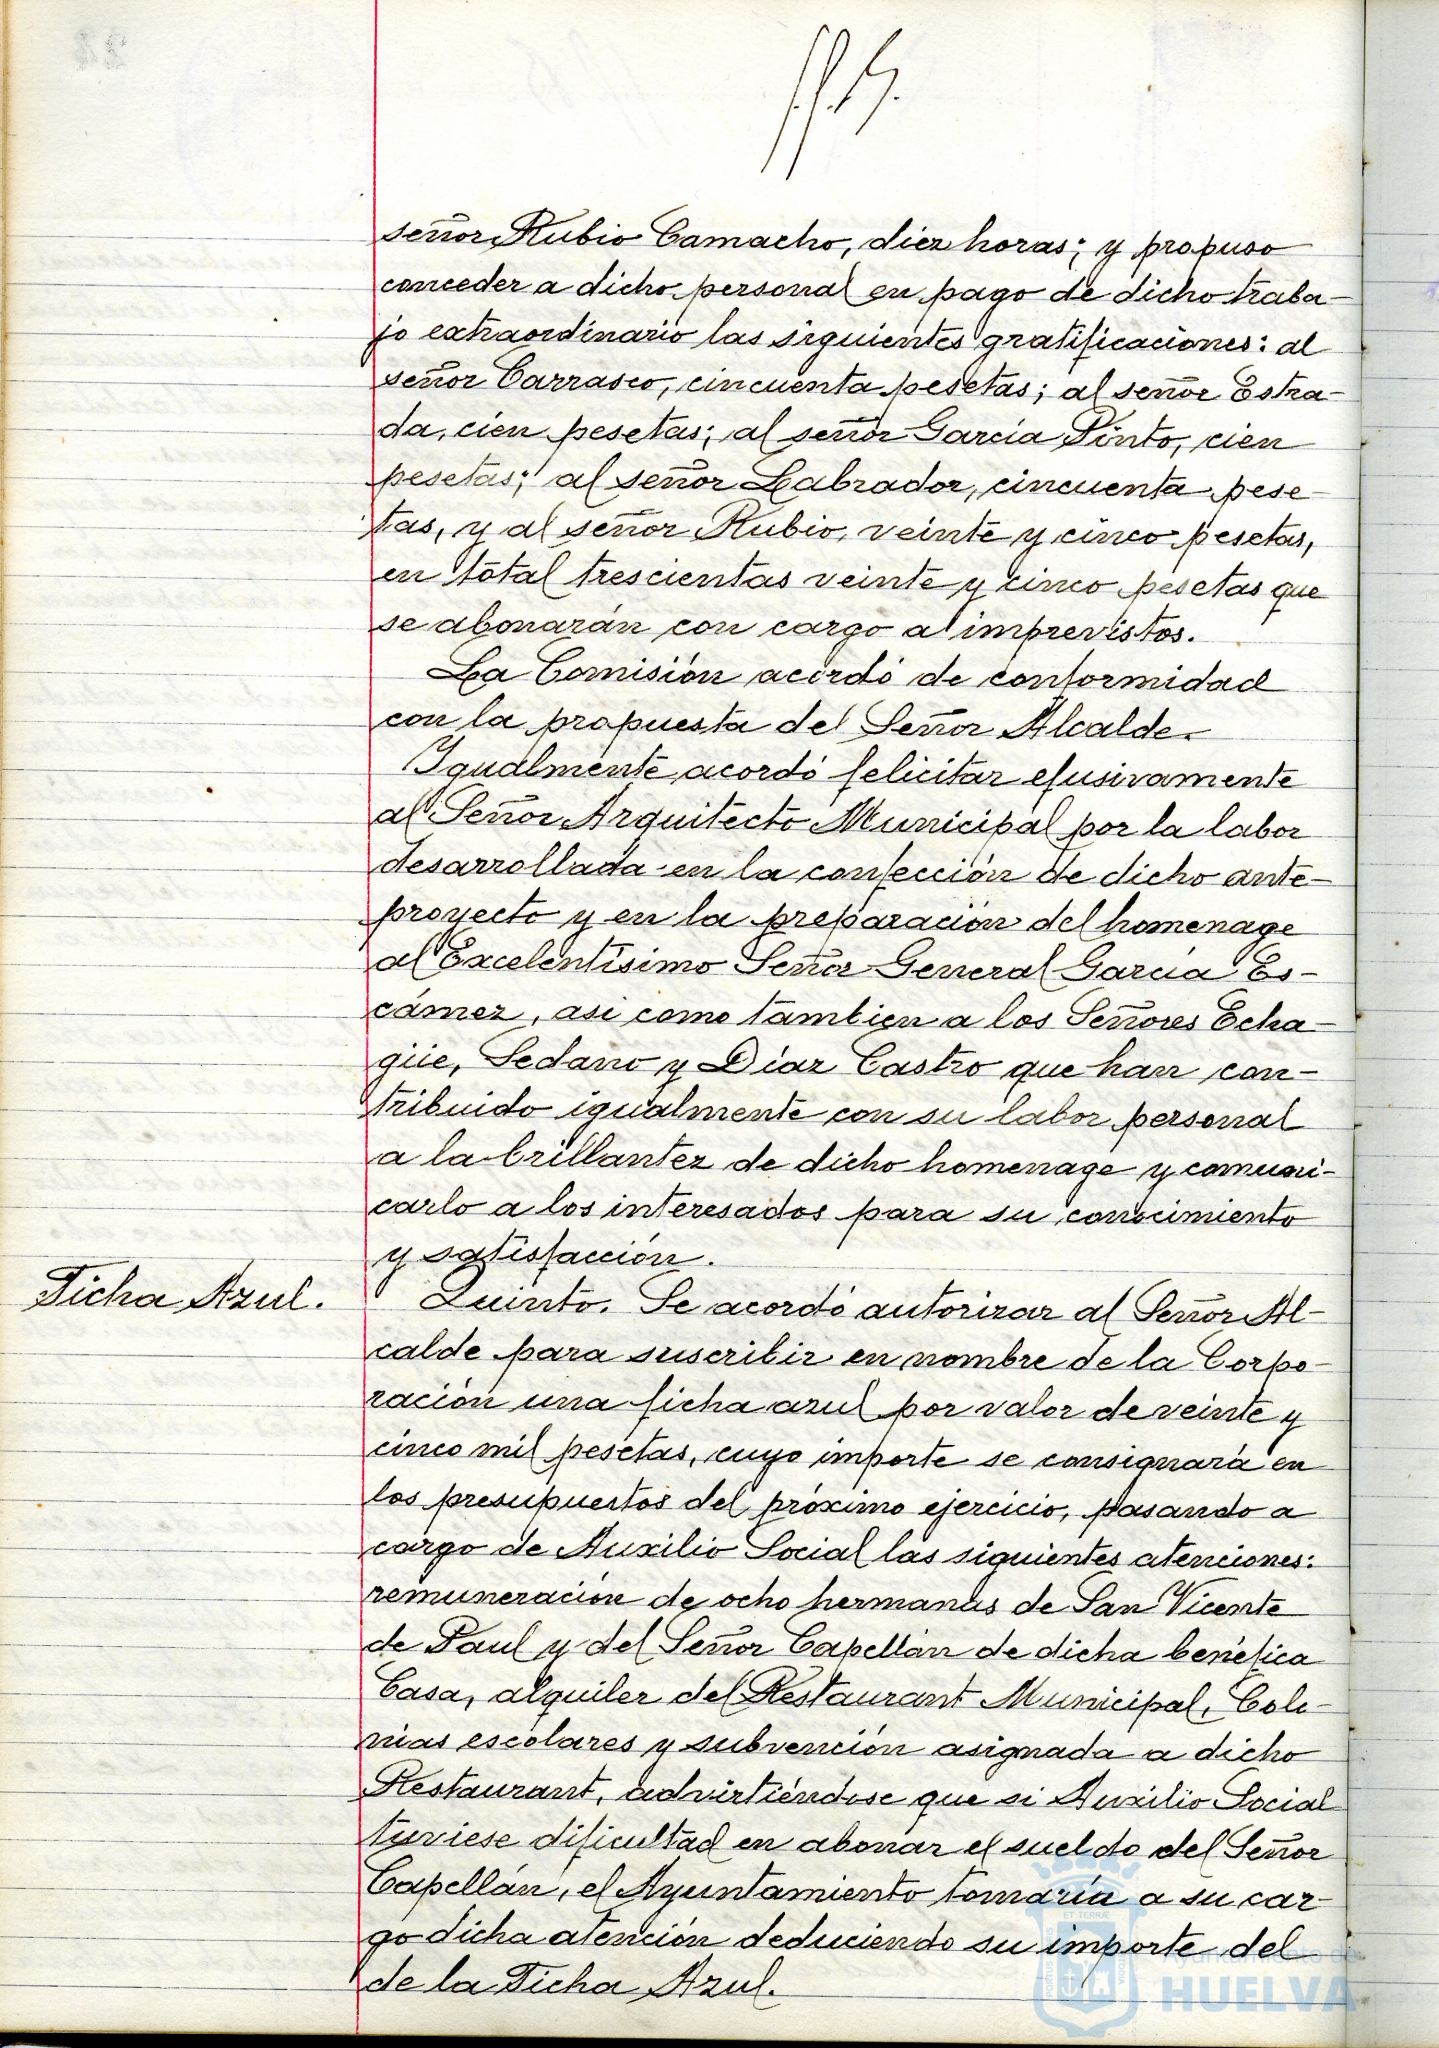 señor Rubio Camacho, diez horas; y propuso
conceder a dicho personal en pago de dicho traba-
jo extraordinario las siguientes gratificaciones: al
señor Carrasco, cincuenta pesetas; al señor Estra-
da, cien pesetas; al señor García Pinto, cien
pesetas; al señor Labrador, cincuenta pese-
tas, y al señor Rubio, veinte y cinco pesetas,
en total trescientas veinte y cinco pesetas que
se abonarán con cargo a imprevistos.
La Comisión acordó de conformidad
con la propuesta del Señor Alcalde.
Igualmente acordó felicitar efusivamente
al Señor Arquitecto Municipal por la labor
desarrollada en la confección de dicho ante-
proyecto y en la preparación del homenage
al Excelentísimo Señor General García Es-
cámez, asi como tambien a los Señores Echa-
güe, Sedano y Díaz Castro que han con-
tribuido igualmente con su labor personal
a la brillantez de dicho homenage y comuni-
carlo a los interesados para su conocimiento
y satisfacción.
Ficha Azul.
Quinto. Se acordó autorizar al Señor Al-
calde para suscribir en nombre de la Corpo-
ración una ficha azul por valor de veinte y
cinco mil pesetas, cuyo importe se consignará en
los presupuestos del próximo ejercicio, pasando a
cargo de Auxilio Social las siguientes atenciones:
remuneración de ocho hermanas de San Vicente
de Paul y del Señor Capellán de dicha benéfica
Casa, alquiler del Restaurant Municipal, Colo-
nias escolares y subvención asignada a dicho
Restaurant, advirtiéndose que si Auxilio Social
tuviese dificultad en abonar el sueldo del Señor
Capellán, el Ayuntamiento tomaría a su car-
go dicha atención deduciendo su importe del
de la Ficha Azul.
Ayuntamiento de
HUELVA